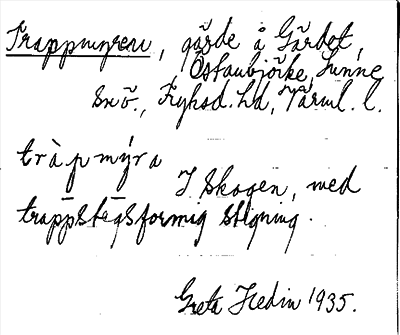 Trappmyren, gärde å Gärdet,
Östanbjörke, Sunne
snö., Fryksd. hd, Värml. l.
tràpmýra
I skogen, med
trappstegsformig stigning.
Greta Hedin 1935.